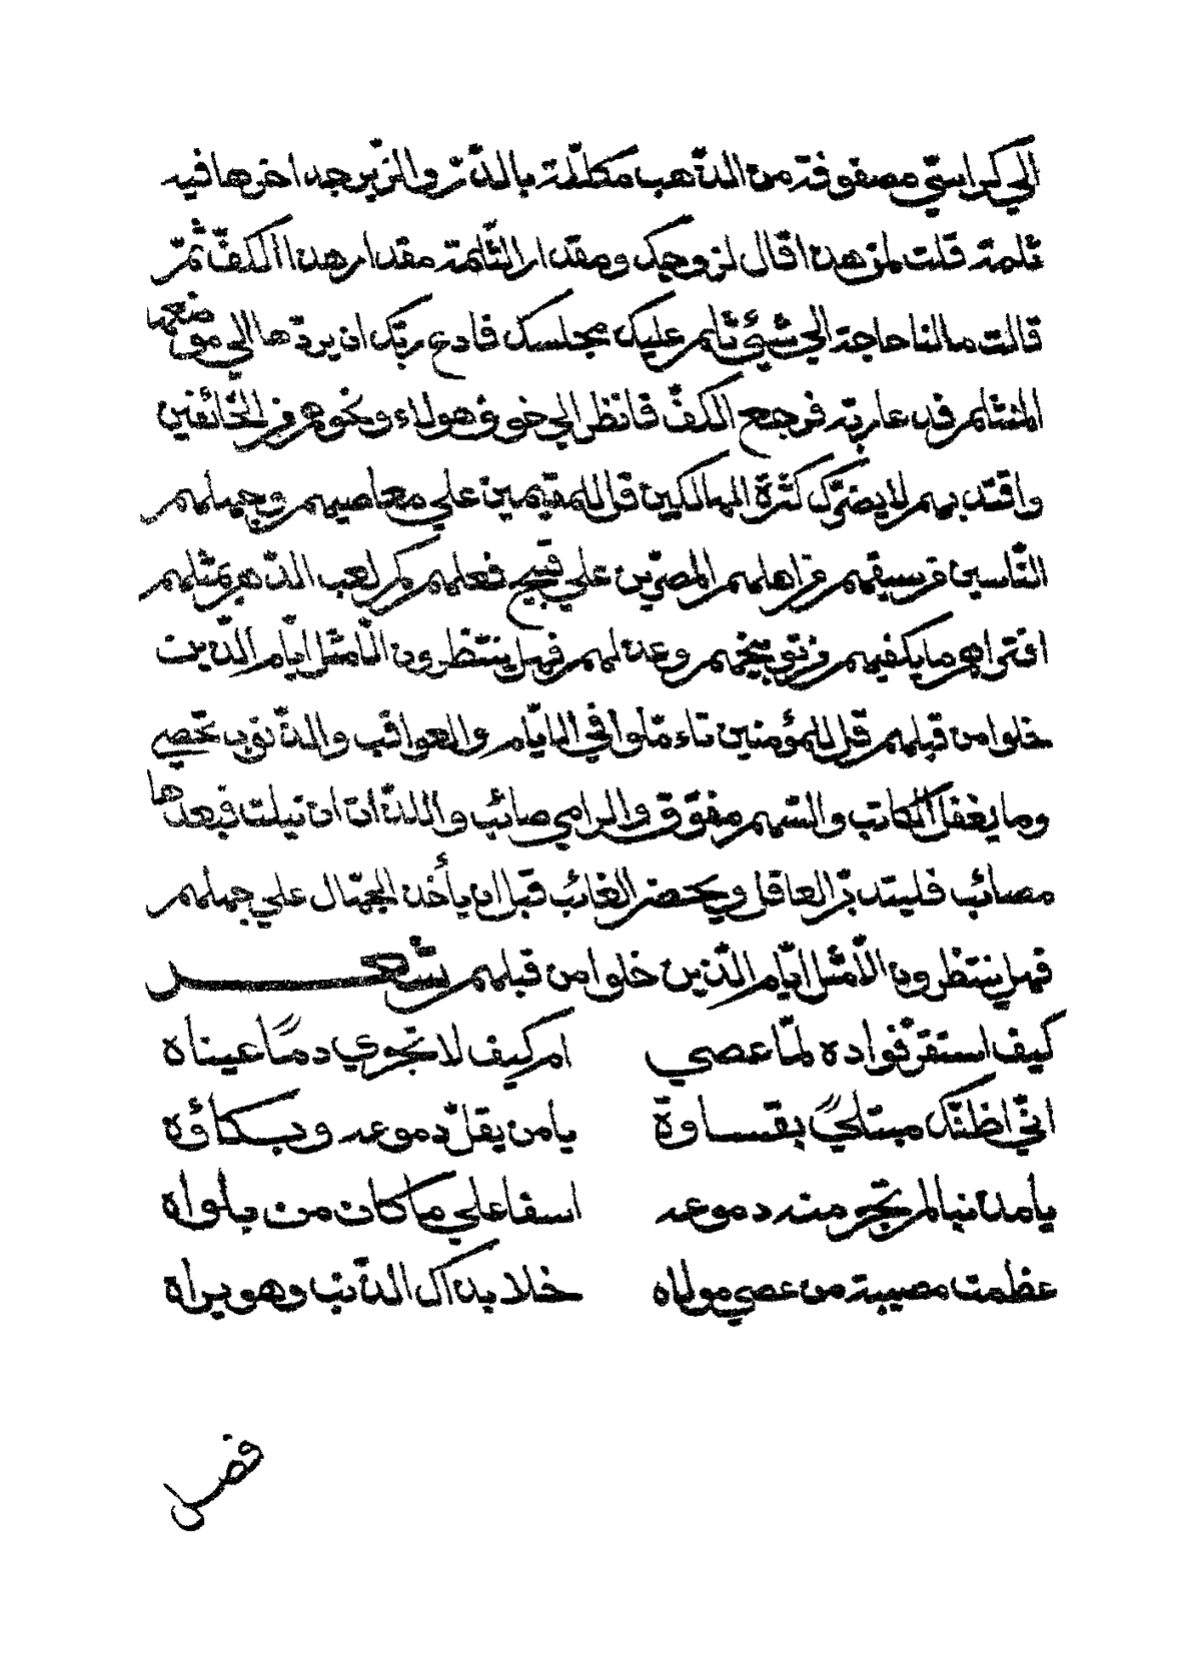 الي كراسيّ مصفوفة من الذّهب مكلّلة بالدّرّ والزّبرجد اخرها فيه
ثلمة قلت لمن هذا قال لزوجك ومقدار الثّلمة مقدار هذا الكفّ ثمّ
قالت مالنا حاجة الي شيئ ثلم عليك مجلسك فادع ربّك ان يردّها الي موضعها
المنثلم فدعا ربّه فرجع الكفّ فانظر الي خوف هولاء ونحوهم من الخائفين
واقتد بهم لا يضرّك كثرة الهالكين قل للمقيمين علي معاصيهم وجهلهم
النّاسين من سبقهم من اهلهم المصرّين علي قبيح فعلهم كم لعب الدّهر بمثلهم
افتراهم ما يكفيهم من توبيخهم وعذلهم فهل ينتظرون الّا مثل ايّام الّذين
خلوا من قبلهم قل للمؤمنين تاءمّلوا في الايّام والعواقب والذّنوب تحصي
وما يغفل الكاتب والسّهم مفوّق والرامي صائب واللذّات ان نيلت فبعدها
مصائب فليتدبّر العاقل ويحضر الغائب قبل ان يأخذ الجهّال علي جهلهم
فهل ينتظرون الّا مثل ايّام الّذين خلوا من قبلهم شعر
كيف استقرّ فواده لمّا عصي ام كيف لا تجري دمًا عيناه
انّي اظنّك مبتليً بقساوة يا من يقلّ دموعه وبكاؤه
يا مذنبا لم تجر منه دموعه اسفا علي ما كان من بلواه
عظمت مصيبة من عصي مولاه خلا بذاك الذّنب وهو يراه
فصل